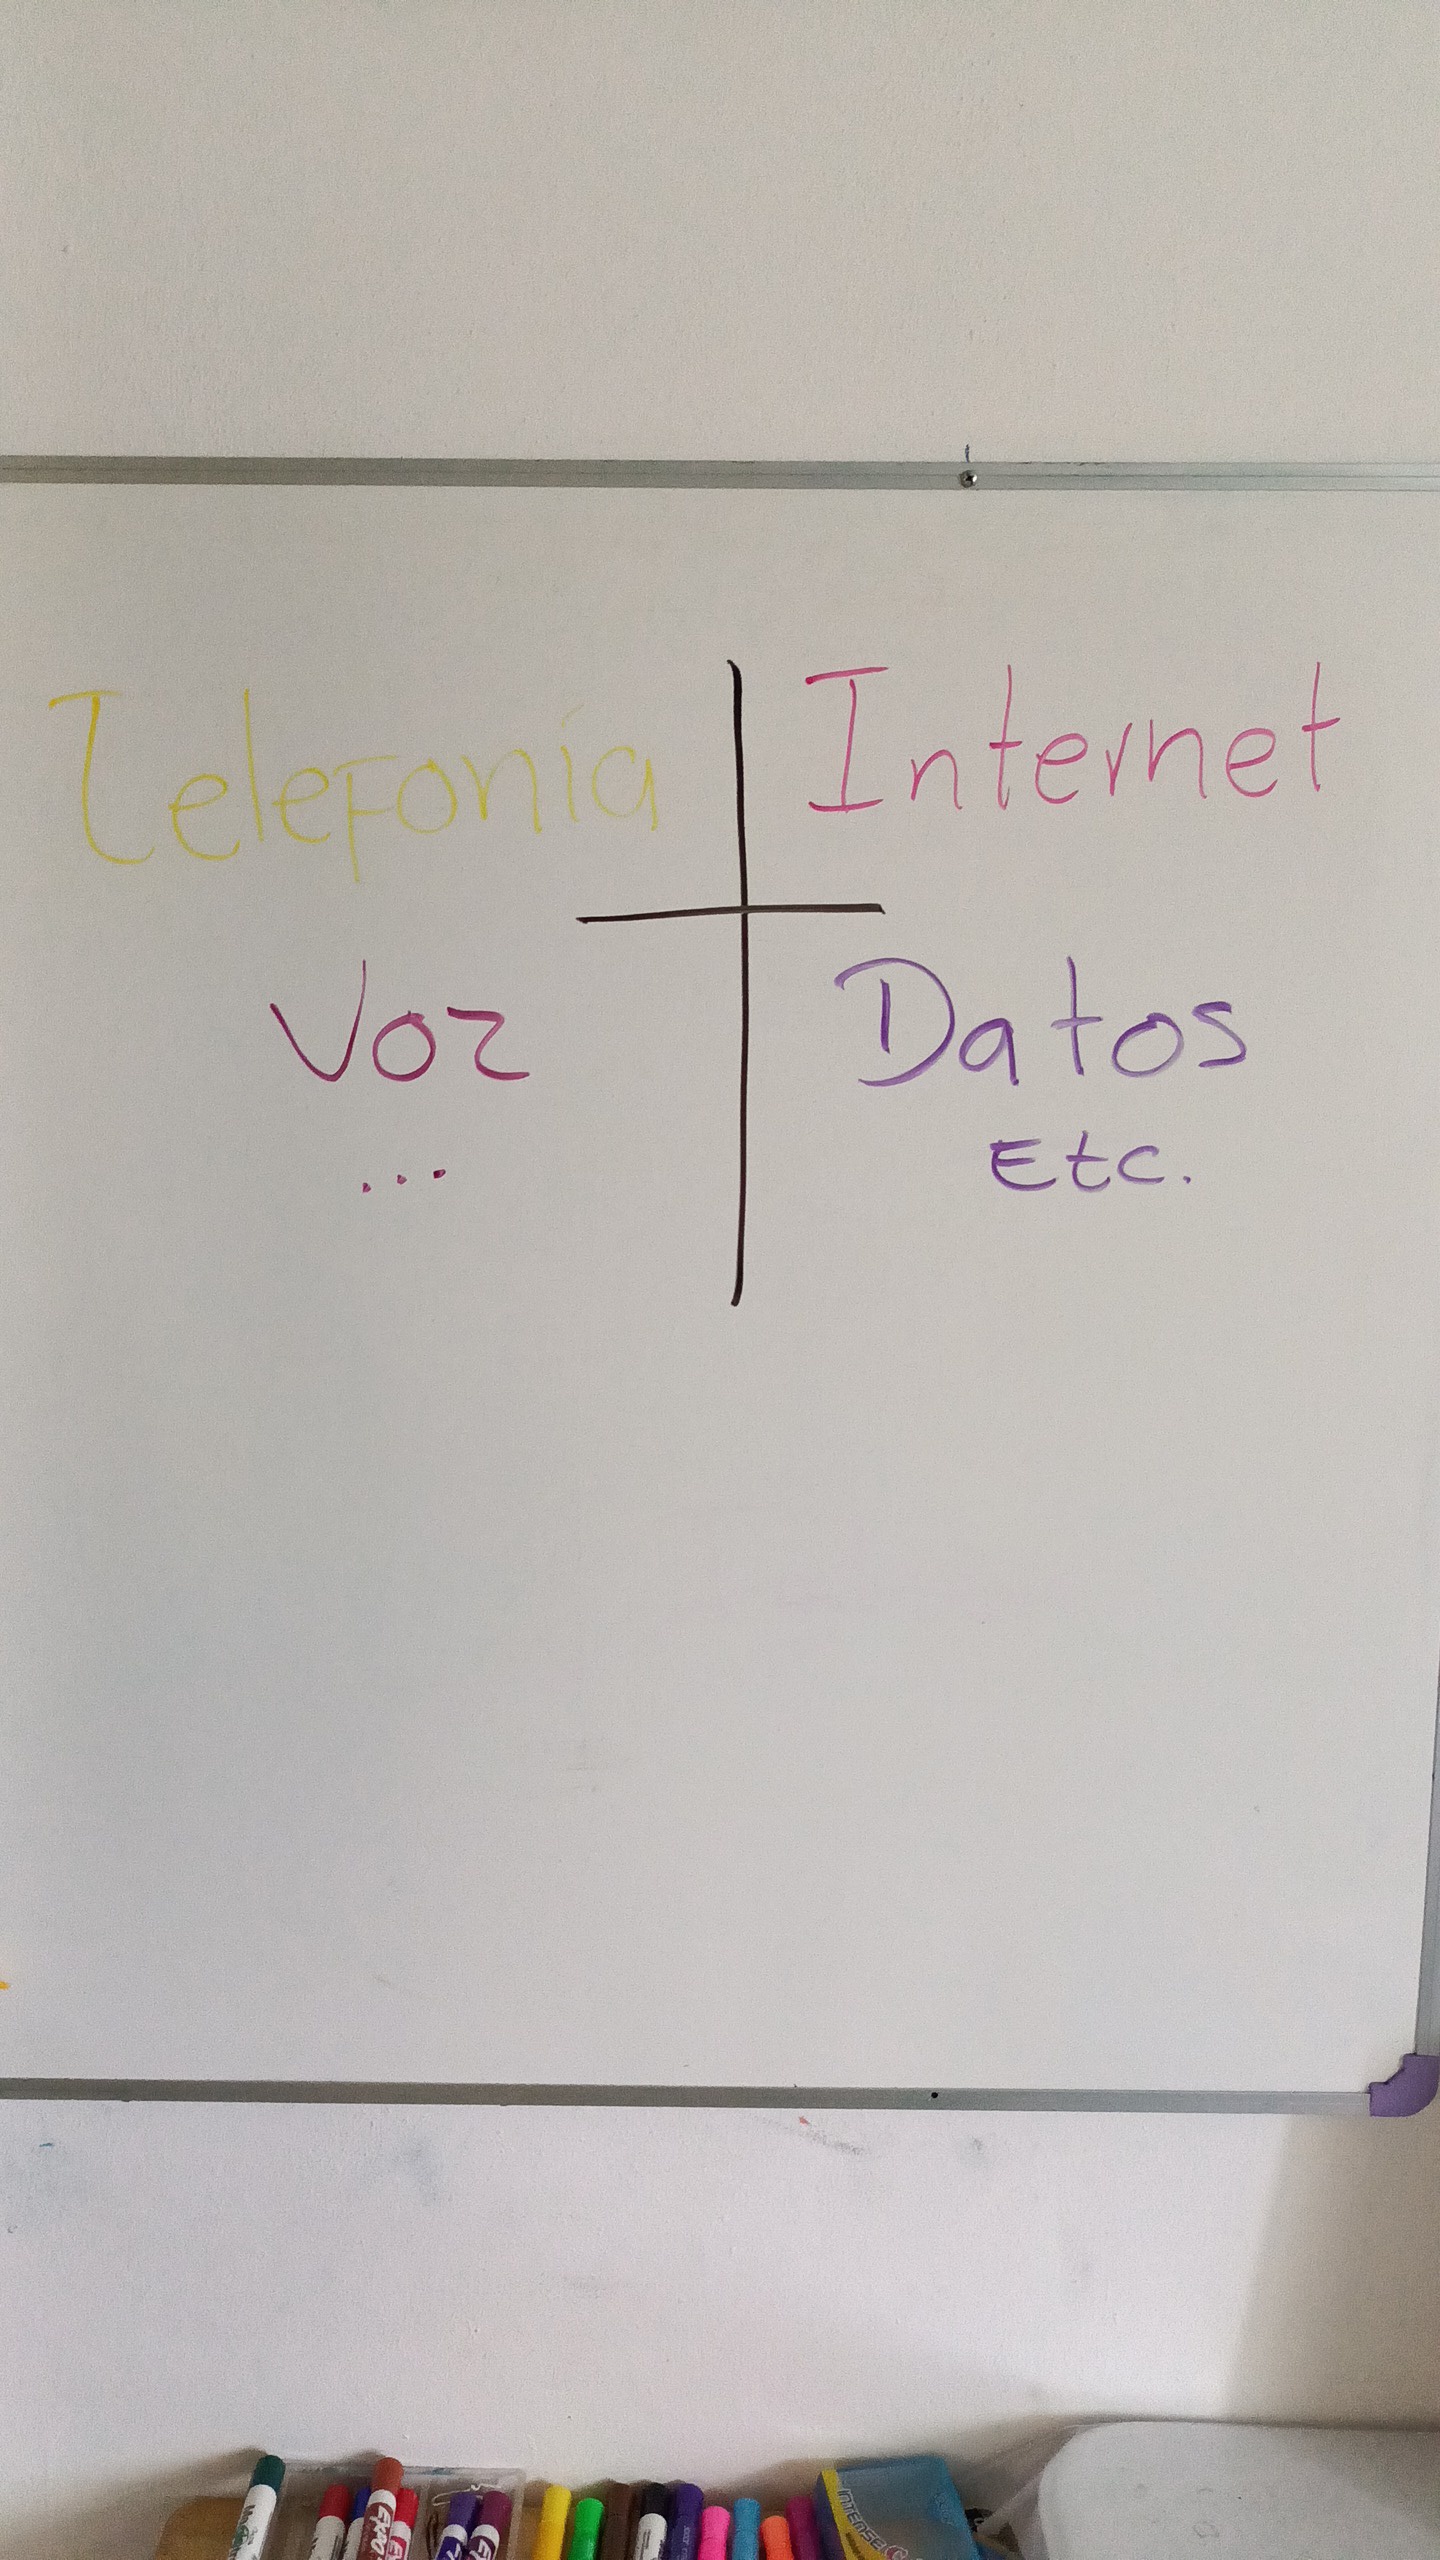 Telefonía
Internet
Voz
Datos
...
Etc.
EXPO
INTENSE